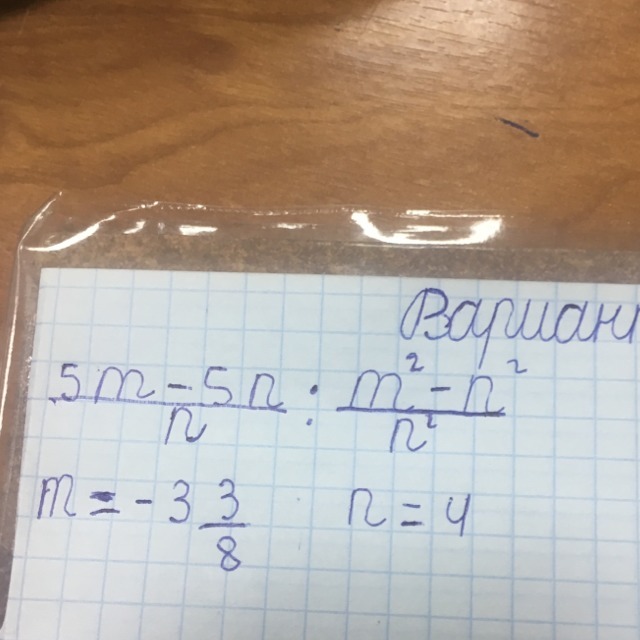 Вариан
5m - 5n / n : m² - n² / n²
m = - 3 3/8 n = 4